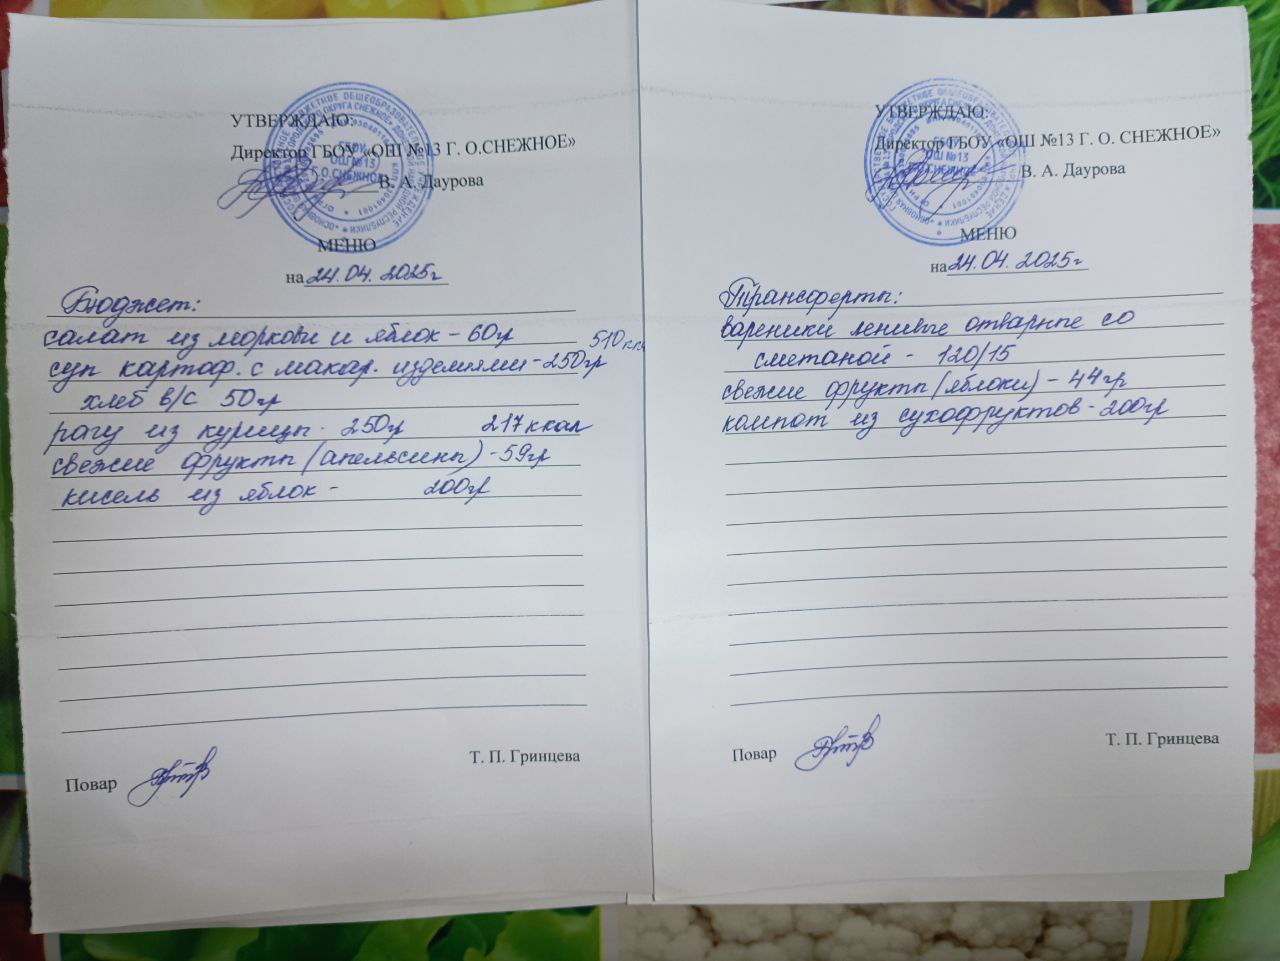 УТВЕРЖДАЮ:
Директор ГБОУ «ОШ №13 Г. О.СНЕЖНОЕ»
В. А. Даурова
ГБОУ
ОШ №13
Г.О.СНЕЖНОЕ
МЕНЮ
на 24.04.2025г
Бюджет:
салат из моркови и яблок - 60гр 510
суп картоф. с макар. изделиями - 250гр
хлеб в/с 50гр
рагу из курицы - 250гр 217ккал
свежие фрукты (апельсины) - 59гр
кисель из яблок - 200гр
Повар
Т. П. Гринцева
УТВЕРЖДАЮ:
Директор ГБОУ «ОШ №13 Г. О. СНЕЖНОЕ»
В. А. Даурова
ГБОУ
ОШ №13
Г.О.СНЕЖНОЕ
МЕНЮ
на 24.04.2025г
Трансферты:
вареники ленивые отварные со
сметаной - 120/15
свежие фрукты (яблоки) - 44гр
компот из сухофруктов - 200гр
Повар
Т. П. Гринцева